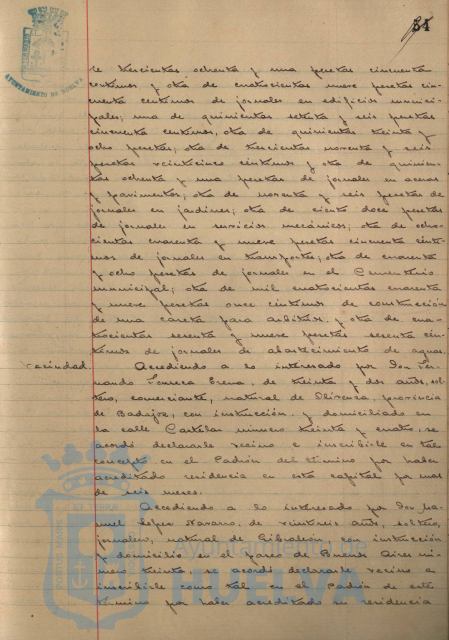 84
AYUNTAMIENTO DE HUELVA
de trescientas ochenta y una pesetas cincuenta
céntimos y otra de cuatrocientas nueve pesetas cin-
cuenta céntimos de jornales en edificios munici-
pales; una de quinientas setenta y seis pesetas
cincuenta céntimos, otra de quinientas treinta y
ocho pesetas; otra de trescientas noventa y seis
pesetas veinticinco céntimos y otra de quinien-
tas ochenta y una pesetas de jornales en aceras
y pavimentos; otra de noventa y seis pesetas de
jornales en jardines; otra de ciento doce pesetas
de jornales en servicios mecánicos; otra de ocho-
cientas cuarenta y nueve pesetas cincuenta cénti-
mos de jornales en transportes; otra de cuarenta
y ocho pesetas de jornales en el Cementerio
municipal; otra de mil cuatrocientas cuarenta
y nueve pesetas once céntimos de construcción
de una caseta para arbitrios y otra de cua-
trocientas sesenta y nueve pesetas sesenta cén-
timos de jornales de abastecimiento de aguas.
Vecindad
Accediendo a lo interesado por Don Fer-
nando Fonseca, de treinta y dos años, sol-
tero, comerciante, natural de Olivenza, provincia
de Badajoz, con instrucción y domiciliado en
la calle Castelar número treinta y cuatro, se
acordó declararle vecino e inscribirle en tal
concepto en el Padrón del término por haber
acreditado residencia en esta capital por mas
de seis meses.
Accediendo a lo interesado por Don Ma-
nuel López Navarro, de veintiseis años, soltero,
jornalero, natural de Gibraleón, con instrucción
y domicilio en el paseo de Buenos Aires nú-
mero treinta, se acordó declararle vecino e
inscribirle como tal en el Padrón de este
término por haber acreditado su residencia
Ayuntamiento
HUELVA